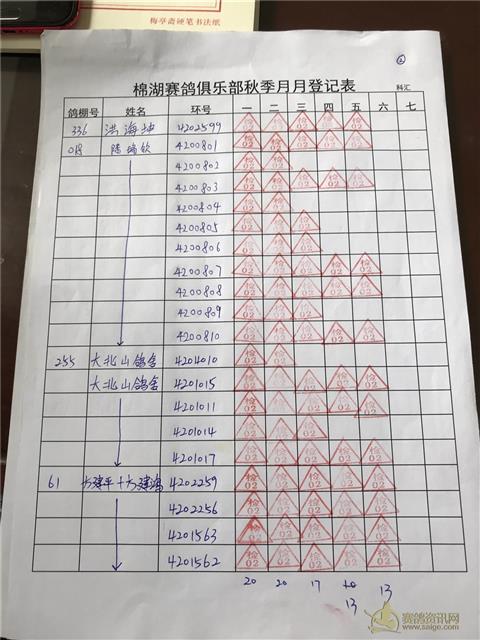 梅亭斋硬笔书法纸
②
棉湖赛鸽俱乐部秋季月月登记表 科汇
鸽棚号 姓名 环号 一 二 三 四 五 六 七
336 洪海坤 4202599 检02 检02 检02 检02 检02
018 陈 钦 4200801 检02 检02 检02 检02 检02
4200802 检02 检02
4200803 检02 检02 检02 检02 检02
4200804 检02 检02
4200805 检02 检02 检02
4200806 检02 检02 检02
4200807 检02 检02 检02 检02 检02
4200808 检02 检02 检02 检02 检02
4200809 检02 检02 检02
4200810 检02 检02 检02 检02 检02
255 大北山鸽舍 4204010 检02 检02
大北山鸽舍 4201015 检02 检02 检02 检02 检02
4201011 检02 检02 检02 检02 检02
4201014 检02 检02 检02
4201017 检02 检02 检02 检02 检02
61 方建平+方建鸿 4202259 检02 检02 检02 检02 检02
4202256 检02 检02 检02 检02 检02
4201563 检02 检02 检02 检02 检02
4201562 检02 检02 检02 检02 检02
20 20 17 13
13
赛鸽资讯网
www.saige.com